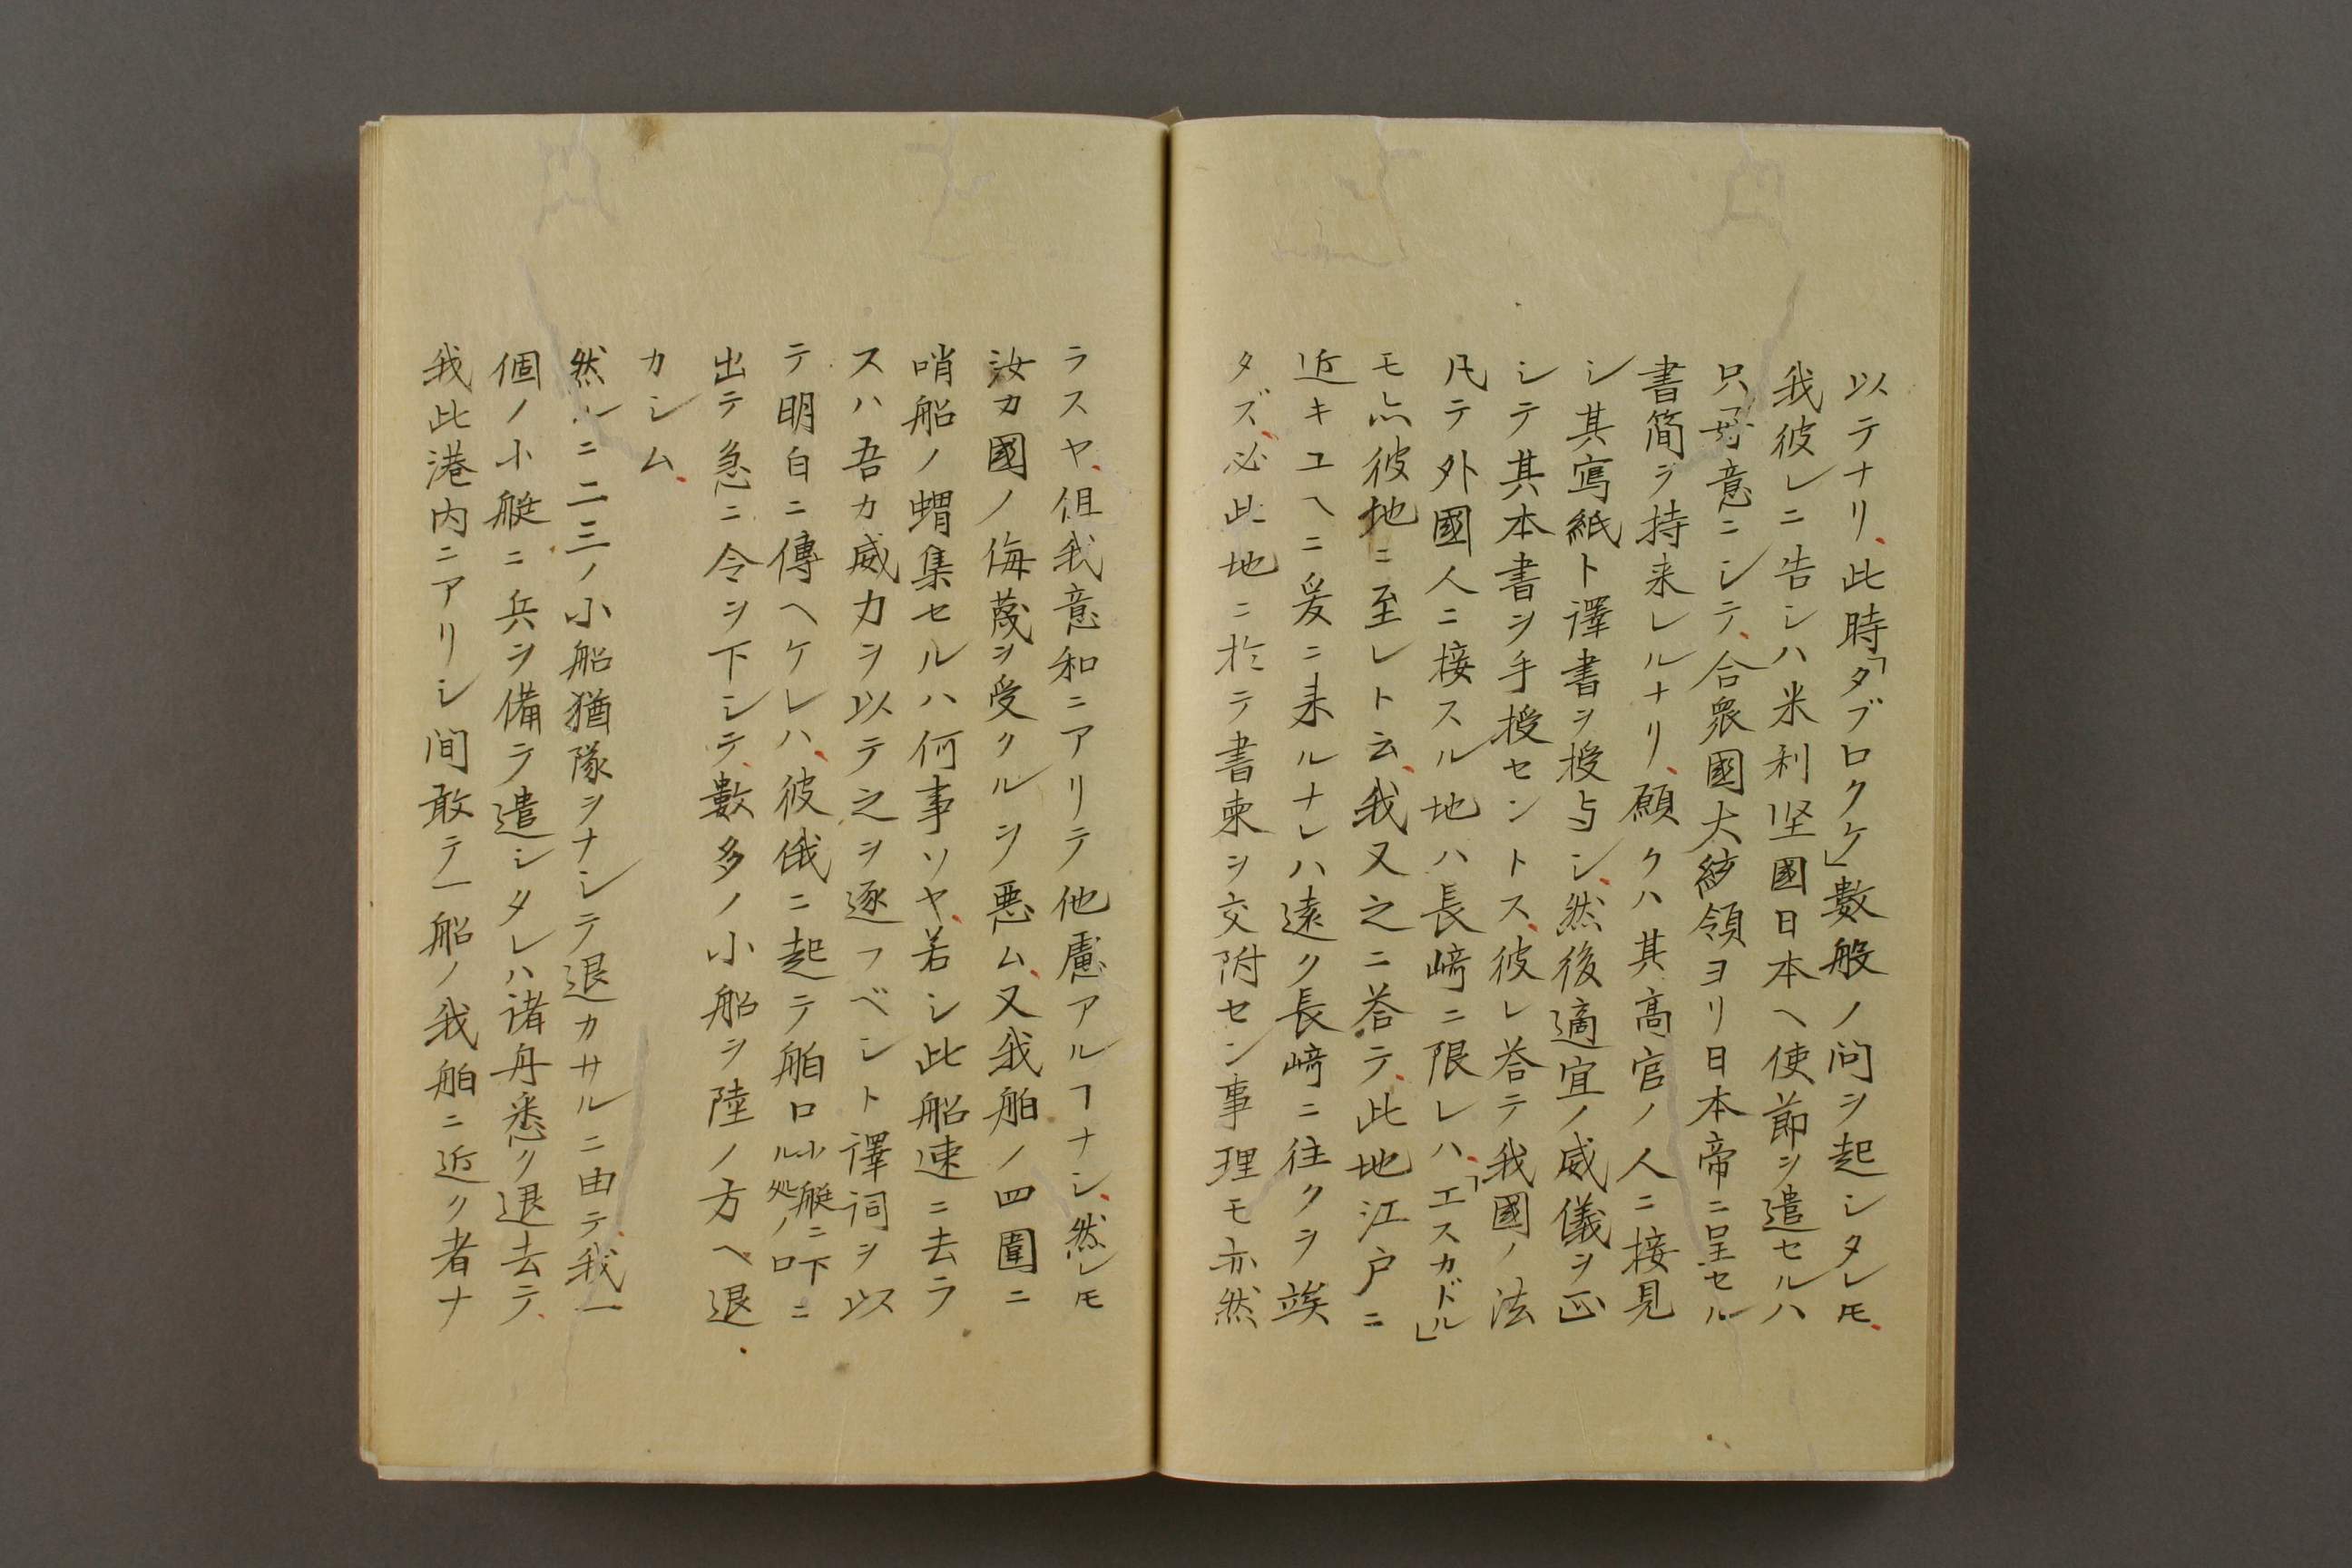 以テナリ、此時「タブロクケ」數般ノ问ヲ起シタレ𪜈、
我彼レニ告シハ米利坚國日本ヘ使節ヲ遣セルハ
只好意ニシテ、合衆國大統領ヨリ日本帝ニ呈セル
書简ヲ持来レルナリ、願クハ其高官ノ人ニ接見
シ其寫紙ト譯書ヲ授与シ、然後適宜ノ威儀ヲ正
シテ其本書ヲ手授セントス、彼レ荅テ我國ノ法
凡テ外國人ニ接スル地ハ長﨑ニ限レハ、「エスカドル」
モ亦彼地ニ至レト云、我又之ニ荅テ、此地江戸ニ
近キユヘニ爰ニ来ルナレハ遠ク長﨑ニ往クヲ竢
タズ、必此地ニ於テ書柬ヲ交附セン事理モ亦然
ラスヤ、但我意和ニアリテ他慮アルヿナシ、然レ𪜈
汝カ國ノ侮蔑ヲ受クルヲ悪ム、又我舶ノ四圍ニ
哨船ノ蝟集セルハ何事ソヤ、若シ此船速ニ去ラ
スハ吾カ威力ヲ以テ之ヲ逐フベシト譯词ヲ以
テ明白ニ傳ヘケレハ、彼俄ニ起テ舶口小艇ニ下ニル処ノ口
出テ急ニ令ヲ下シテ、數多ノ小船ヲ陸ノ方ヘ退
カシム、
然ルニ二三ノ小船猶隊ヲナシテ退カサルニ由テ、我一
個ノ小艇ニ兵ヲ備テ遣シタレハ诸舟悉ク退去テ、
我此港内ニアリシ间敢テ一船ノ我舶ニ近ク者ナ